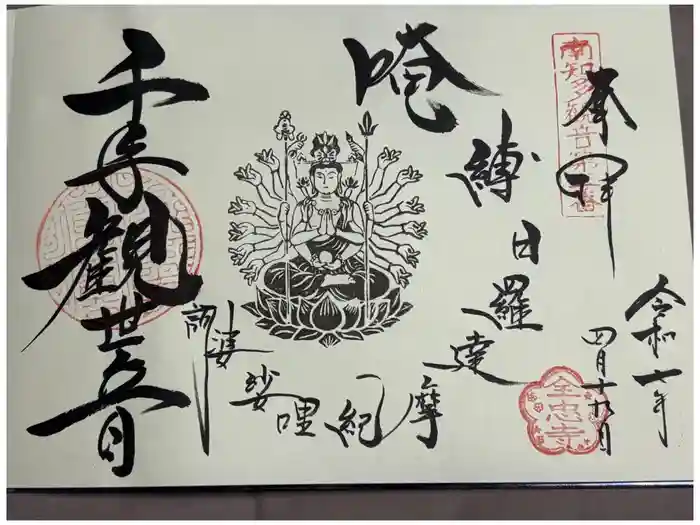 奉拝
南知多観音第壱番
令和七年
四月十九日
全忠寺
唵
縛
日
羅
達
摩
紀
哩
娑婆訶
千手観世音